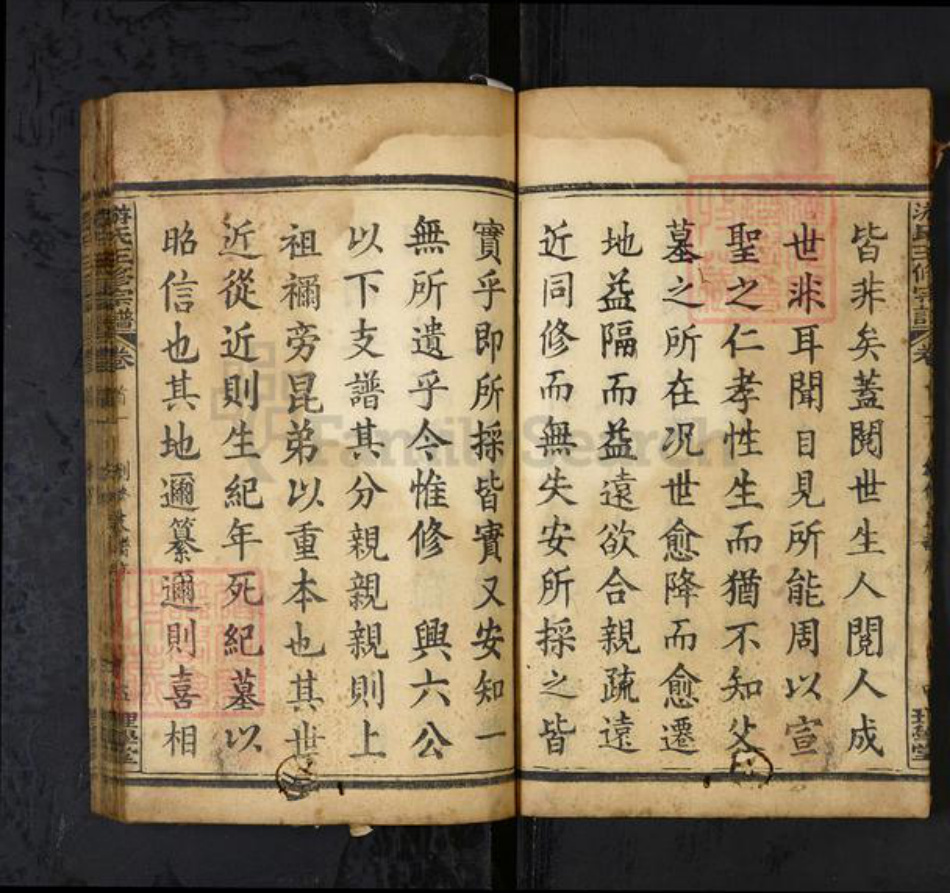 皆非矣蓋閱世生人閱人成
世非耳聞目見所能周以宣
聖之仁孝性生而猶不知父
墓之所在况世愈降而愈遷
地益隔而益遠欲合親疏遠
近同修而無失安所採之皆
實乎即所採皆實又安知一
無所遺乎今惟修 興六公
以下支譜其分親親親則上
祖禰旁昆弟以重本也其世
近從近則生紀年死紀墓以
昭信也其地邇纂邇則喜相
游氏三修宗譜 卷首
理學堂
FamilySearch